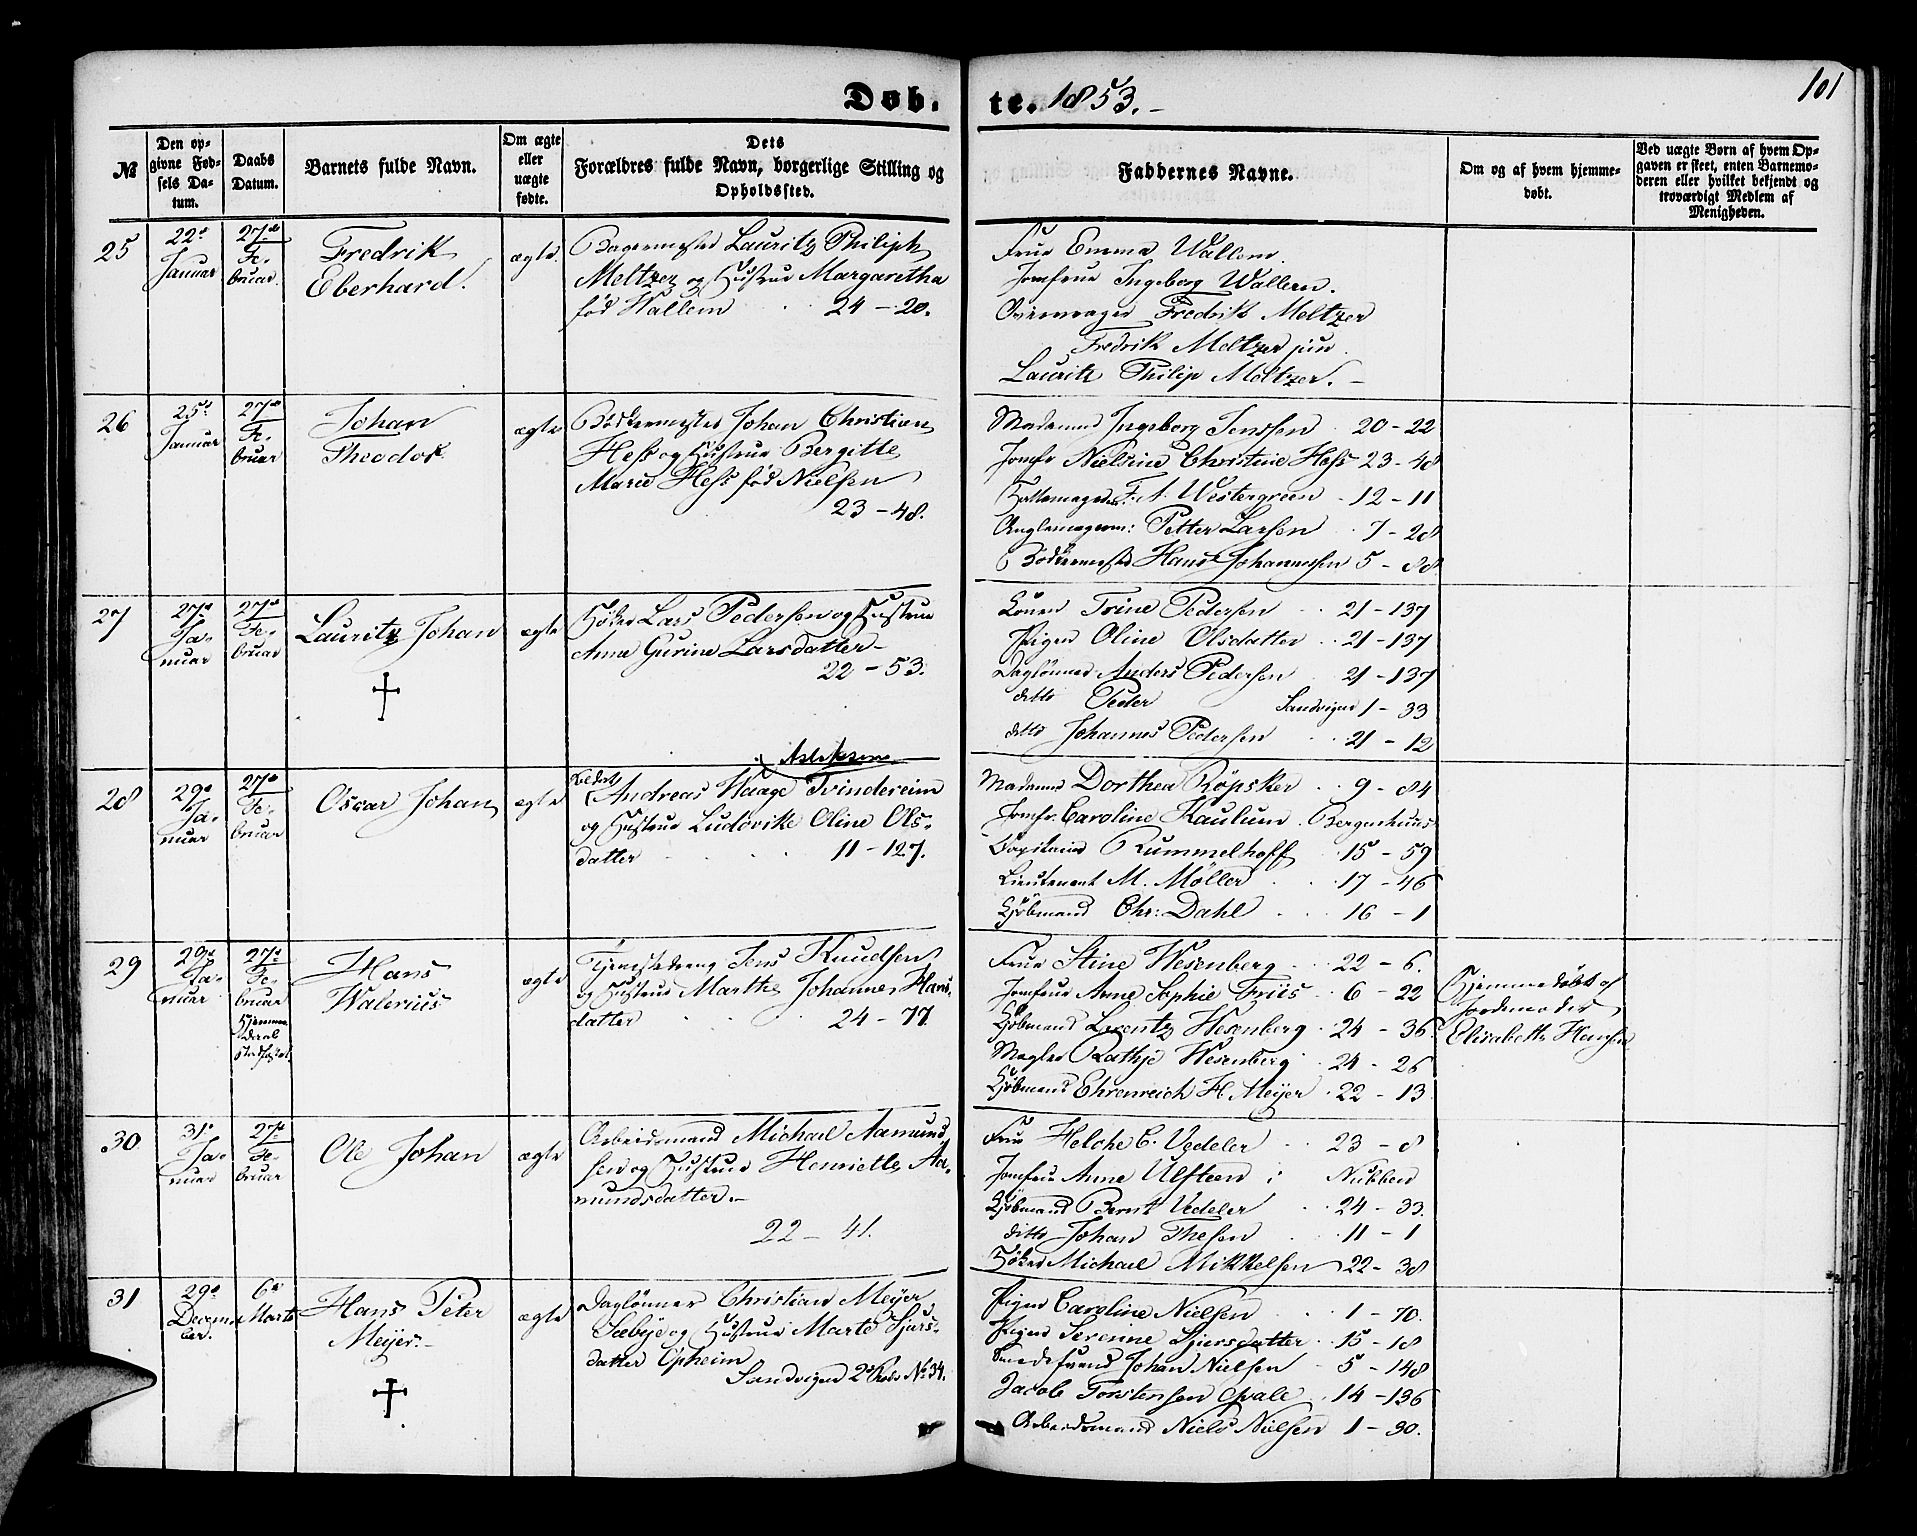 Døb-
te. 1853.-
101
№
Den op-
givne Fød-
sels Da-
tum.
Daabs
Datum.
Barnets fulde Navn.
Om ægte
eller
uægte
fødte.
Dets
Forældres fulde Navn, borgerlige Stilling og
Opholdssted.
Faddernes Navne.
Om og af hvem hjemme-
døbt.
Ved uægte Børn af hvem Op-
gaven er skeet, enten Barnemo-
deren eller hvilket bekjendt og
troværdigt Medlem af
Menigheden.
25
22d
Januar
27de
Fe-
bruar.
Fredrik
Eberhard.
ægte.
Bagermester Lauritz Philiph
Meltzer og Hustrue Margaretha
fød Wallem 24 - 20.
Frue Emma Wallem.
Jomfrue Ingeborg Wallem.
Fredrik Meltzer
Fredrik Meltzer jun.
Lauritz Philip Meltzer. -
26
25d
Januar
27de
Fe-
bruar
Johan
Theodor.
ægte
Bødkermester Johan Christian
Hess og Hustrue Bergitte
Marie Hess fød Nielsen
23 - 48.
Madame Ingeborg Jenssen 20 - 22
Jomfr Nielsine Christine Hess 23 - 48
F. A. Westergreen 12 - 11
Petter Larsen 7 - 28
Bødkermester Hans Johannessen 5 - 88
27
27d
Ja-
nuar
27de
Fe-
bruar
Lauritz Johan
ægte
Høker Lars Pedersen og Hustrue
Anne Gurine Larsdatter -
22 - 53.
Konen Trine Pedersen 21 - 137
Pigen Oline Olsdatter 21 - 137
Daglønner Anders Pedersen 21 - 137
ditto Peder Sandvigen 1 - 33
ditto Johannes Pedersen 21 - 12
28
29d
Ja-
nuar
27de
Fe-
bruar
Oscar Johan
ægte
Aslaksen
Andreas Haage Tvindereim
og Hustrue Ludovike Oline Ols-
datter 11 - 127.
Madame Dorthea Röpsker 9 - 84
Jomfr. Caroline Kaulum Bergenhuus
Capitain Rummelhoff 15 - 59
Lieutenant M. Møller 17 - 46
Kjøbmand Chr: Dahl 16 - 1
29
29d
Ja-
nuar
27de
Fe-
bruar
Hjemme
daab
stadfæstet
Hans
Walerius
ægte
Tjenestedreng Jens Knudsen
og Hustrue Marthe Johannes Hans-
datter 24 - 77
Frue Stine Wesenberg 22 - 6.
Jomfrue Anne Sophie Friis 6 - 22
Kjøbmand Lorentz Wesenberg 24 - 36.
Mægler Rathje Wesenberg 24 - 26
Kjøbmand Ehrenreich H. Meyer 22 - 13
Hjemmedøbt af
Jordemoder
Elisabeth Hansen
30
31d
Ja-
nuar
27de
Fe-
bruar
Ole Johan
ægte
Arbeidsmand Michael Aamund-
sen og Hustrue Henriette Aa-
mundsdatter.-
22 - 41.
Frue Helche C. Vedeler 23 - 8
Jomfrue Anne Ulfteen i Nubben
Kjøbmand Bernt Vedeler 24 - 33.
ditto Johan Thesen 11 - 1
Høker Michael Mikkelsen 22 - 38
31
29d
Decem-
ber.
6te
Marts
Hans Peter
Meyer.-
ægte
Daglønner Christian Meyer
Sæbye og Hustrue Marte Sjurs-
datter Opheim
Sandvigen 2d Rode No 34.
Pigen Caroline Nielsen 1 - 70.
Pigen Serenine Sjursdatter 15 - 18
Smedesvend Johan Nielsen 5 - 148
Jacob Torstensen Qvale 14 - 136
Arbeidsmand Niels Nielsen 1 - 30.